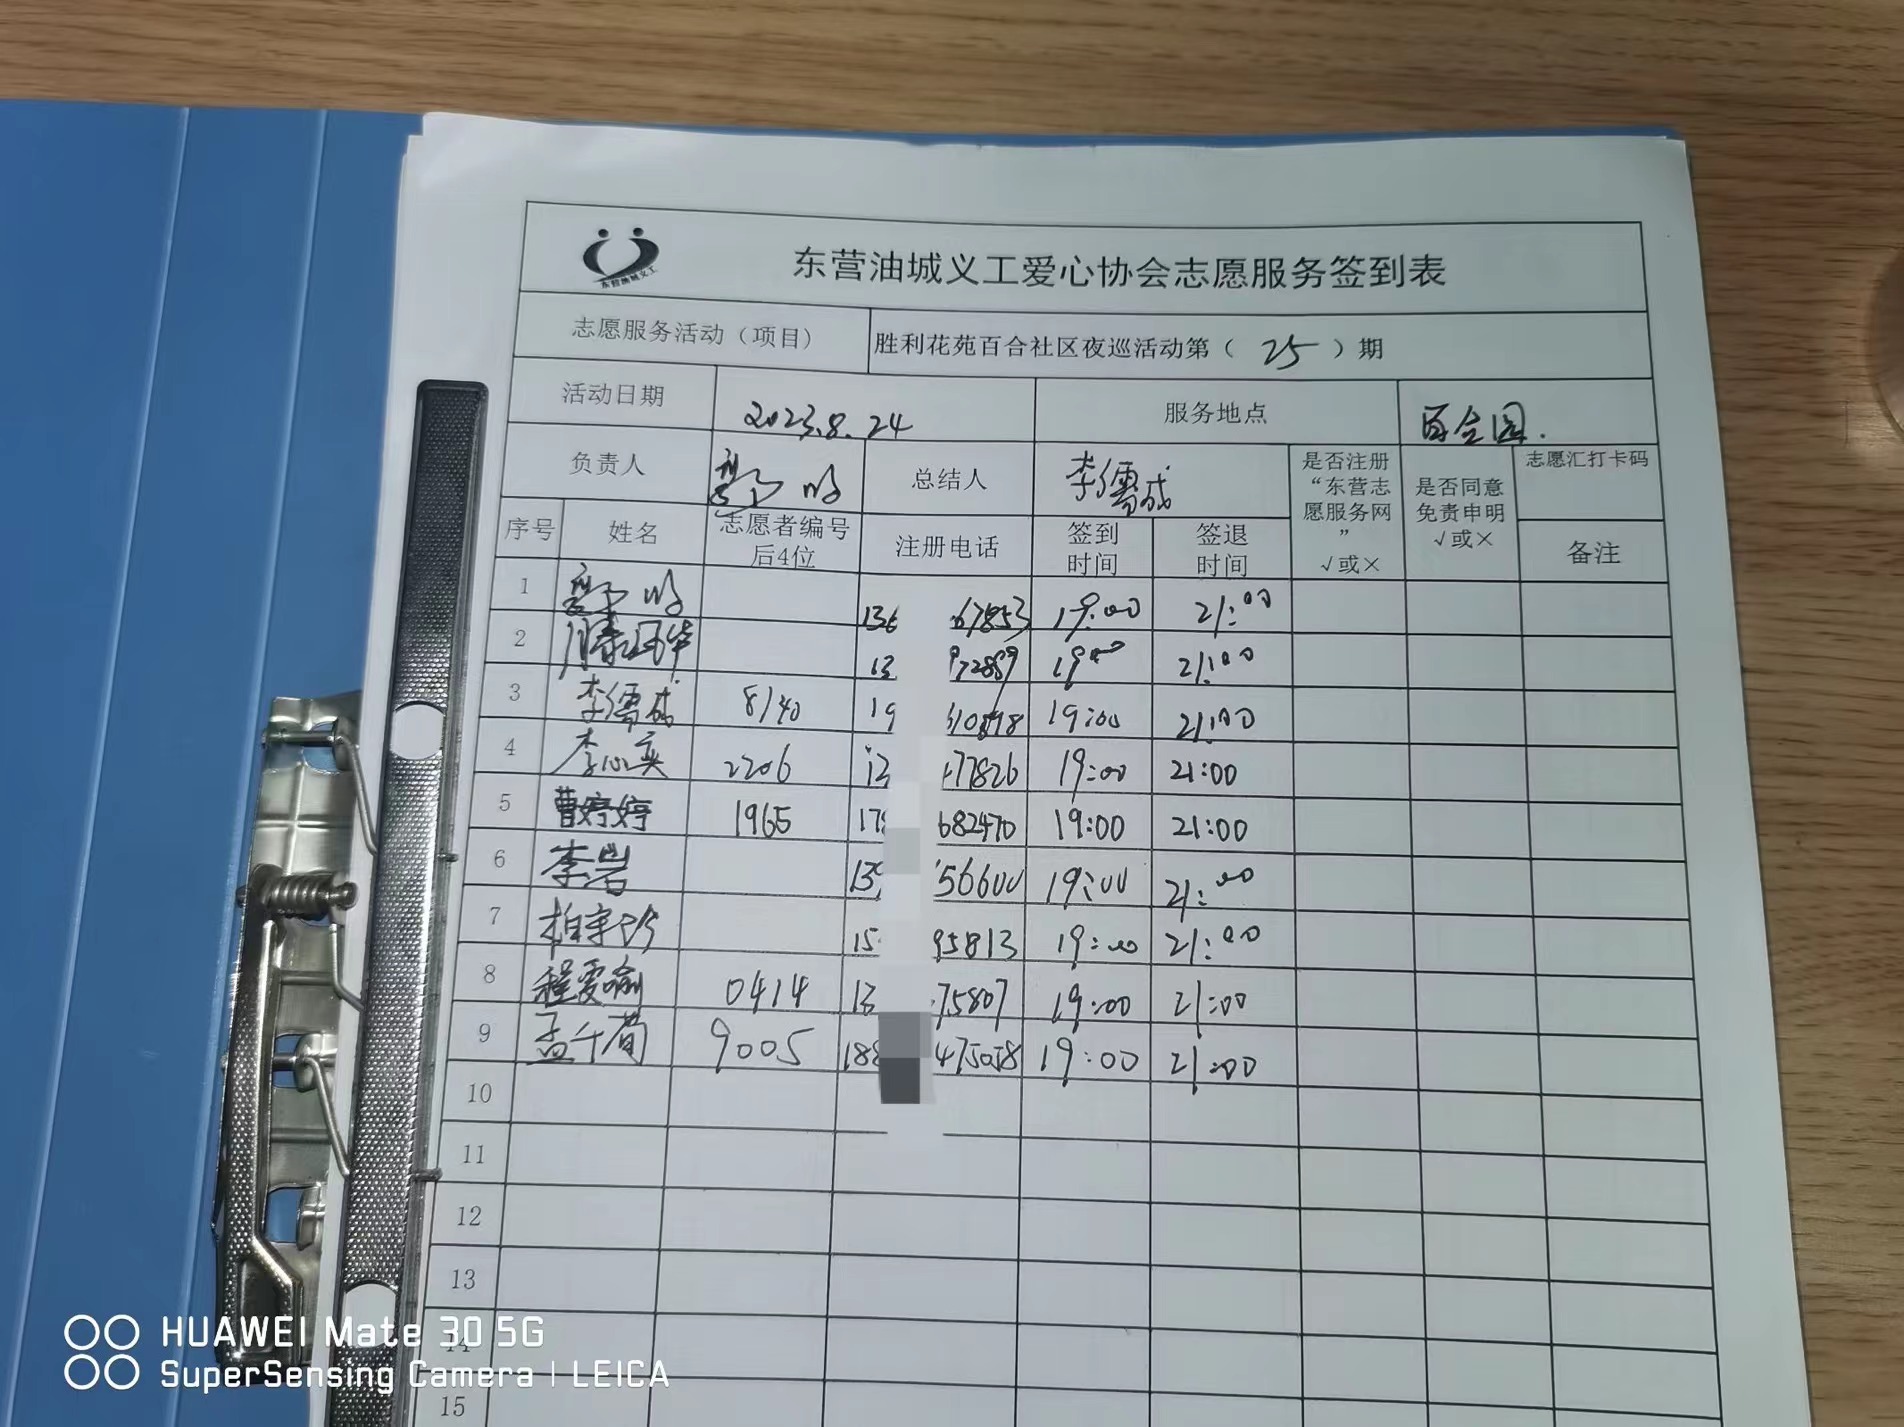 东营油城义工
东营油城义工爱心协会志愿服务签到表
志愿服务活动（项目） 胜利花苑百合社区夜巡活动第（ 25 ）期
活动日期 2023.8.24 服务地点 百合园.
负责人 总结人 李儒成 是否注册“东营志愿服务网” √或× 是否同意免责申明 √或× 志愿汇打卡码
序号 姓名 志愿者编号后4位 注册电话 签到时间 签退时间 备注
1 136 67853 19:00 21:00
2 滕国华 13 972889 19:00 21:00
3 李儒成 8140 19 19:00 21:00
4 李心奕 2206 13 77826 19:00 21:00
5 曹婷婷 1965 178 682470 19:00 21:00
6 李岩 139 56600 19:00 21:00
7 柏宇珍 15 95813 19:00 21:00
8 程雯喻 0414 13 75807 19:00 21:00
9 孟千荀 9005 188 475058 19:00 21:00
10
11
12
13
14
15
HUAWEI Mate 30 5G
SuperSensing Camera | LEICA